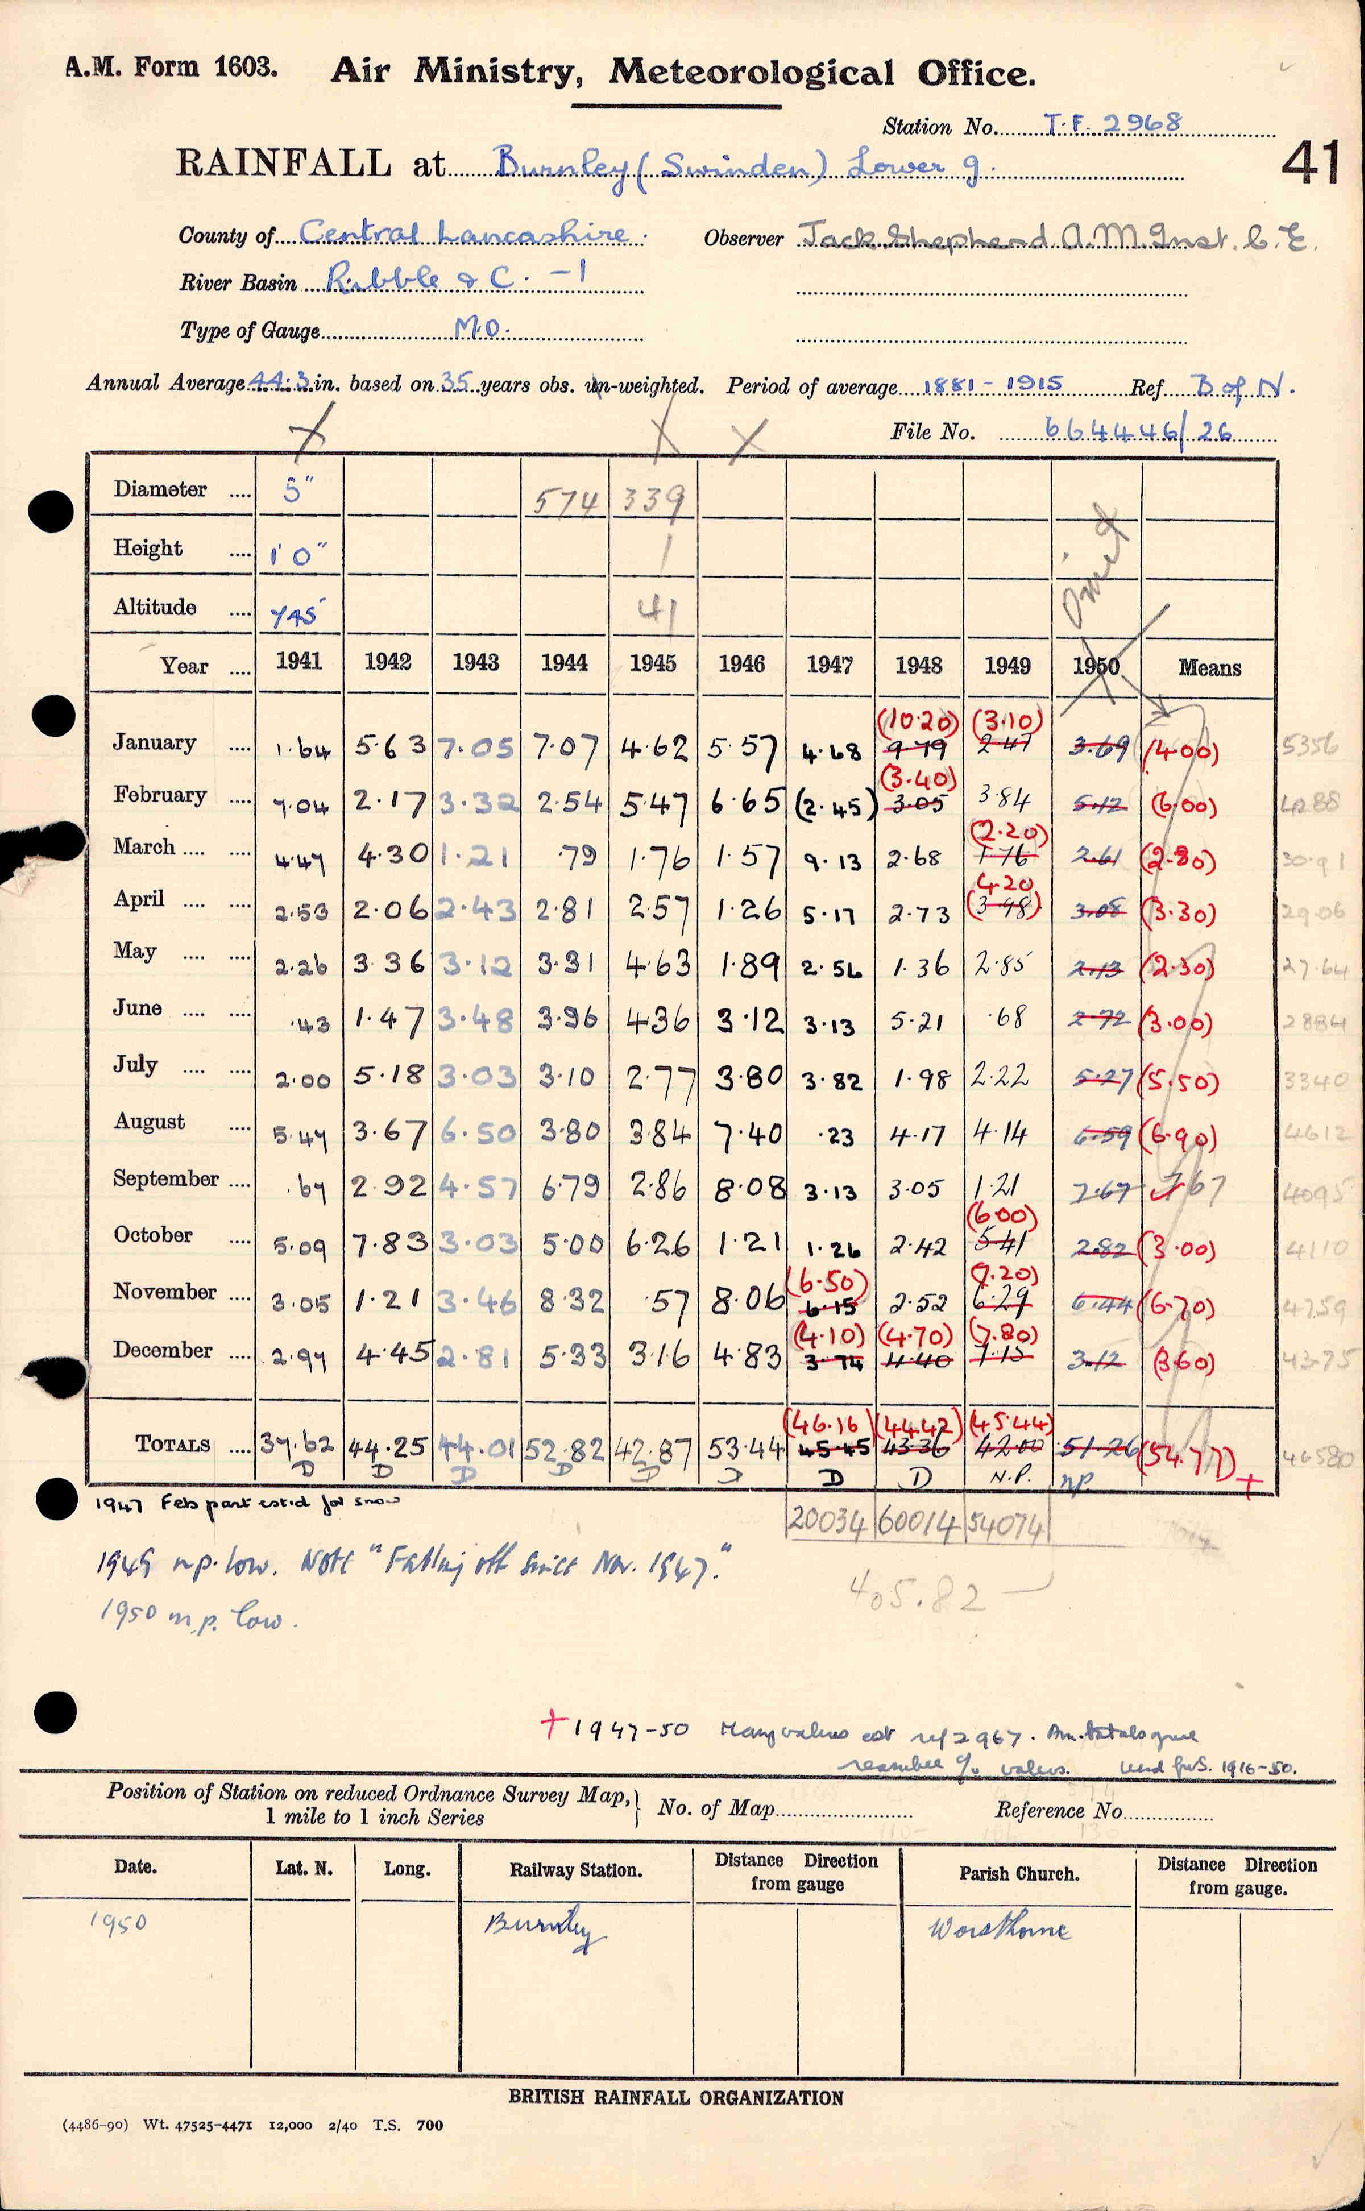 A.M. Form 1603. Air Ministry, Meteorological Office.
Station No. T.F. 2968
RAINFALL at Burnley (Swinden) Lower g. 41
County of Central Lancashire. Observer Jack Shepherd A.M.Inst. C.E.
River Basin Ribble & C. -1
Type of Gauge M.O.
Annual Average 44.3 in. based on 35 years obs. un-weighted. Period of average 1881-1915 Ref. B of N.
File No. 664446/26
Diameter .... 5" 574 339
Height .... 1' 0" 1
Altitude .... 745 41
Omit
Year .... 1941 1942 1943 1944 1945 1946 1947 1948 1949 1950 Means
(10.20) (3.10)
January .... 1.64 5.63 7.05 7.07 4.62 5.57 4.68 9.79 2.47 3.69 (4.00) 5356
(3.40)
February .... 7.04 2.17 3.32 2.54 5.47 6.65 (2.45) 3.05 3.84 5.12 (6.00) 4288
(2.20)
March .... .... 4.47 4.30 1.21 .79 1.76 1.57 9.13 2.68 1.76 2.61 (2.80) 30.91
4.20
April .... .... 2.53 2.06 2.43 2.81 2.57 1.26 5.17 2.73 (3.98) 3.08 (3.30) 29.06
May .... .... 2.26 3.36 3.12 3.31 4.63 1.89 2.56 1.36 2.85 2.13 (2.30) 27.64
June .... .... .43 1.47 3.48 3.96 4.36 3.12 3.13 5.21 .68 2.72 (3.00) 2884
July .... .... 2.00 5.18 3.03 3.10 2.77 3.80 3.82 1.98 2.22 5.27 (5.50) 3340
August .... 5.47 3.67 6.50 3.80 3.84 7.40 .23 4.17 4.14 6.59 (6.90) 4612
September .... .67 2.92 4.57 6.79 2.86 8.08 3.13 3.05 1.21 7.67 7.67 4095
(6.00)
October .... 5.09 7.83 3.03 5.00 6.26 1.21 1.26 2.42 5.41 2.82 (3.00) 4110
(6.50) (7.20)
November .... 3.05 1.21 3.46 8.32 .57 8.06 6.15 2.52 6.29 6.44 (6.70) 4759
(4.10) (4.70) (7.80)
December .... 2.97 4.45 2.81 5.33 3.16 4.83 3.74 4.40 7.15 3.12 (3.60) 4375
(46.16) (44.42) (45.44)
TOTALS .... 37.62 44.25 44.01 52.82 42.87 53.44 45.45 43.36 42.00 51.26 (54.77) + 46580
D D D D D D D D N.P. NP
1947 Feb part estd for snow
20034 60014 54074
1949 n.p. low. Note "Falling off since Nov. 1947."
405.82
1950 n.p. low.
+ 1947-50 Many values est ref 2967.
used for S. 1916-50.
Position of Station on reduced Ordnance Survey Map, 1 mile to 1 inch Series } No. of Map Reference No.
Date. Lat. N. Long. Railway Station. Distance Direction from gauge Parish Church. Distance Direction from gauge.
1950 Burnley Worsthorne
BRITISH RAINFALL ORGANIZATION
(4486-90) Wt. 47525-4471 12,000 2/40 T.S. 700